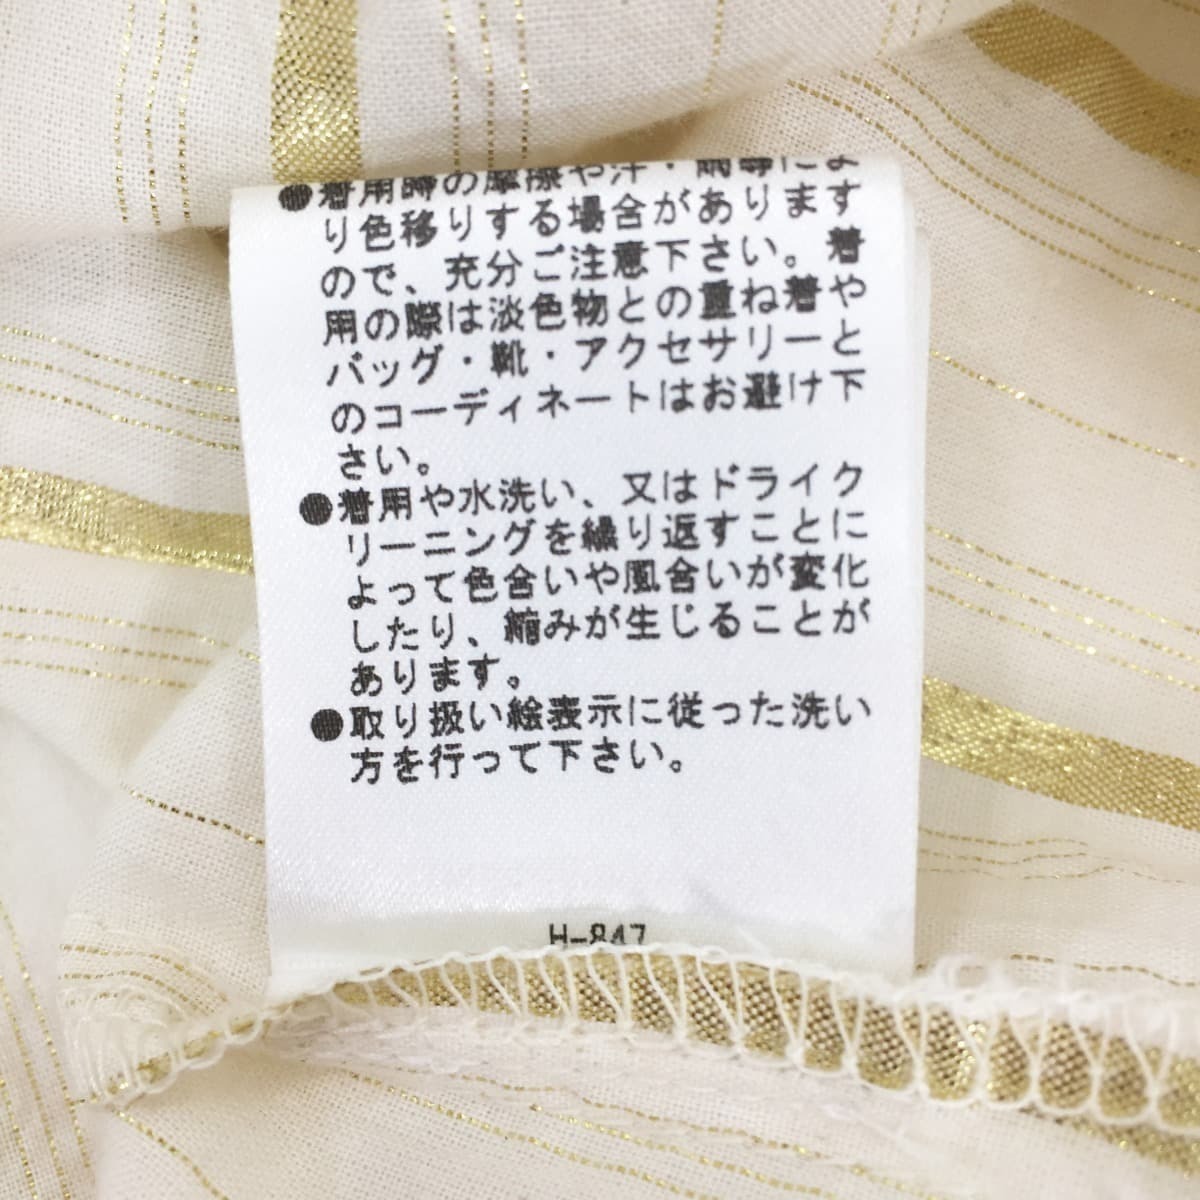 ●着用時の摩擦や汗・雨等によ
り色移りする場合があります
ので、充分ご注意下さい。着
用の際は淡色物との重ね着や
バッグ・靴・アクセサリーと
のコーディネートはお避け下
さい。
●着用や水洗い、又はドライク
リーニングを繰り返すことに
よって色合いや風合いが変化
したり、縮みが生じることが
あります。
●取り扱い絵表示に従った洗い
方を行って下さい。
H-847